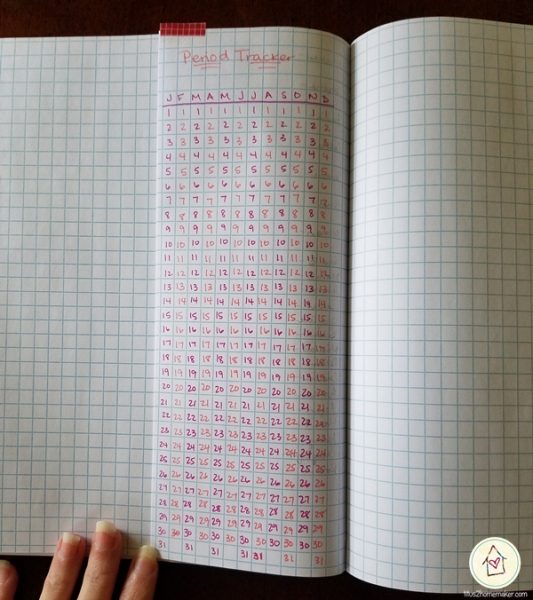 Period Tracker
J F M A M J J A S O N D
1 1 1 1 1 1 1 1 1 1 1 1
2 2 2 2 2 2 2 2 2 2 2 2
3 3 3 3 3 3 3 3 3 3 3 3
4 4 4 4 4 4 4 4 4 4 4 4
5 5 5 5 5 5 5 5 5 5 5 5
6 6 6 6 6 6 6 6 6 6 6 6
7 7 7 7 7 7 7 7 7 7 7 7
8 8 8 8 8 8 8 8 8 8 8 8
9 9 9 9 9 9 9 9 9 9 9 9
10 10 10 10 10 10 10 10 10 10 10 10
11 11 11 11 11 11 11 11 11 11 11 11
12 12 12 12 12 12 12 12 12 12 12 12
13 13 13 13 13 13 13 13 13 13 13 13
14 14 14 14 14 14 14 14 14 14 14 14
15 15 15 15 15 15 15 15 15 15 15 15
16 16 16 16 16 16 16 16 16 16 16 16
17 17 17 17 17 17 17 17 17 17 17 17
18 18 18 18 18 18 18 18 18 18 18 18
19 19 19 19 19 19 19 19 19 19 19 19
20 20 20 20 20 20 20 20 20 20 20 20
21 21 21 21 21 21 21 21 21 21 21 21
22 22 22 22 22 22 22 22 22 22 22 22
23 23 23 23 23 23 23 23 23 23 23 23
24 24 24 24 24 24 24 24 24 24 24 24
25 25 25 25 25 25 25 25 25 25 25 25
26 26 26 26 26 26 26 26 26 26 26 26
27 27 27 27 27 27 27 27 27 27 27 27
28 28 28 28 28 28 28 28 28 28 28 28
29 29 29 29 29 29 29 29 29 29 29 29
30 30 30 30 30 30 30 30 30 30 30
31 31 31 31 31 31
titus2homemaker.com